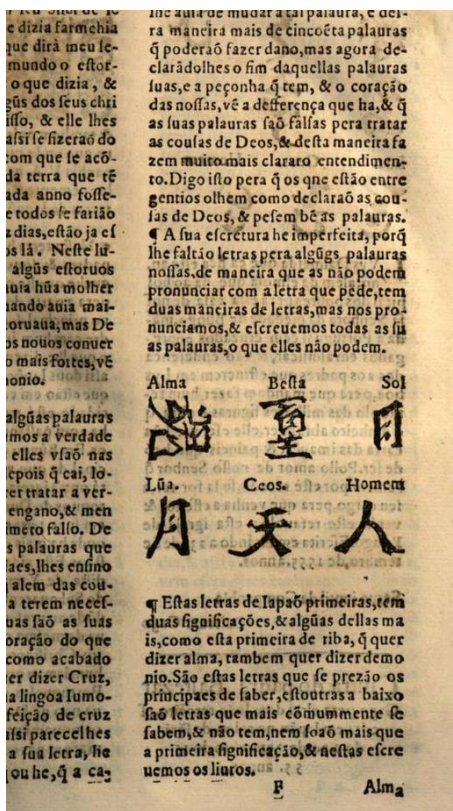 e dizia farmenhia
que dirà meu ſe-
mundo o eſtor-
o que dizia, &
gũs dos ſeus chri
iſſo, & elle lhes
aſsi ſe fizeraõ do
com que ſe acõ-
da terra que tẽ
ada anno foſſe-
e todos ſe farião
dias, eſtão ja eſ
os lá. Neſte lu-
algũs eſtoruos
auia hũa molher
ando auia mai-
oruaua, mas De
os nouos conuer
o mais fortes, vẽ
onio.
algũas palauras
imos a verdade
elles vſaõ nas
epois q̃ cai, lo-
er tratar a ver-
engano, & men
imẽto falſo. De
s palauras que
aes, lhes enſino
alem das cou-
a terem neceſ-
uas ſaõ as ſuas
oração do que
como acabado
er dizer Cruz,
a lingoa Iumo-
feição de cruz
aſsi parecelhes
a ſua letra, he
ou he, q̃ a ca-
lhe auia de mudar a tal palaura, e deſ-
ra maneira mais de cincoẽta palauras
q̃ poderaõ fazer dano, mas agora de-
clarãdolhes o fim daquellas palauras
ſuas, e a peçonha q̃ tem, & o coração
das noſſas, vẽ a defferença que ha, & q̃
as ſuas palauras ſaõ falſas pera tratar
as couſas de Deos, & deſta maneira fa
zem muito mais clararo entendimen-
to. Digo iſto pera q̃ os qne eſtão entre
gentios olhem como declaraõ as cou-
ſas de Deos, & peſem bẽ as palauras.
¶ A ſua eſcretura he imperfeita, porq̃
lhe faltão letras pera algũgs palauras
noſſas, de maneira que as não podem
pronunciar com a letra que pede, tem
duas maneiras de letras, mas nos pro-
nunciamos, & eſcreuemos todas as ſu
as palauras, o que elles não podem.
Alma Beſta Sol
日
Lũa. Ceos. Homem
月 天 人
¶ Eſtas letras de Iapaõ primeiras, tem
duas ſignificações, & algũas dellas ma
is, como eſta primeira de riba, q̃ quer
dizer alma, tambem quer dizer demo
nio. São eſtas letras que ſe prezão os
principaes de ſaber, eſtoutras a baixo
ſaõ letras que mais cõmummente ſe
ſabem, & não tem, nem ſoaõ mais que
a primeira ſignificação, & neſtas eſcre
uemos os liuros.
F Alma